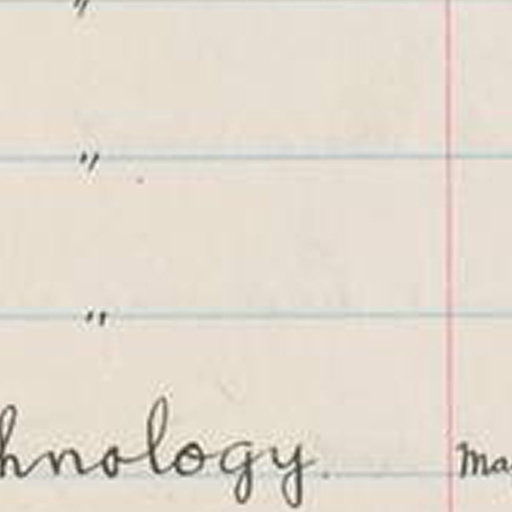 "
"
"
hnology. Ma